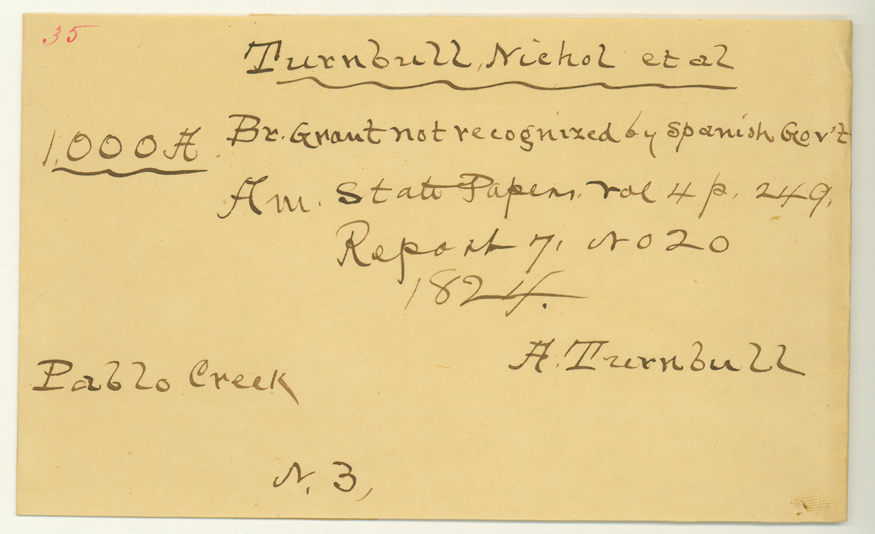 35
Turnbull, Nichol et al
1,000 A Br. Grant not recognized by Spanish Gov't
Am. State Papers, vol 4 p. 249.
Report 7, No 20
1824.
A. Turnbull
Pablo Creek
N. 3,